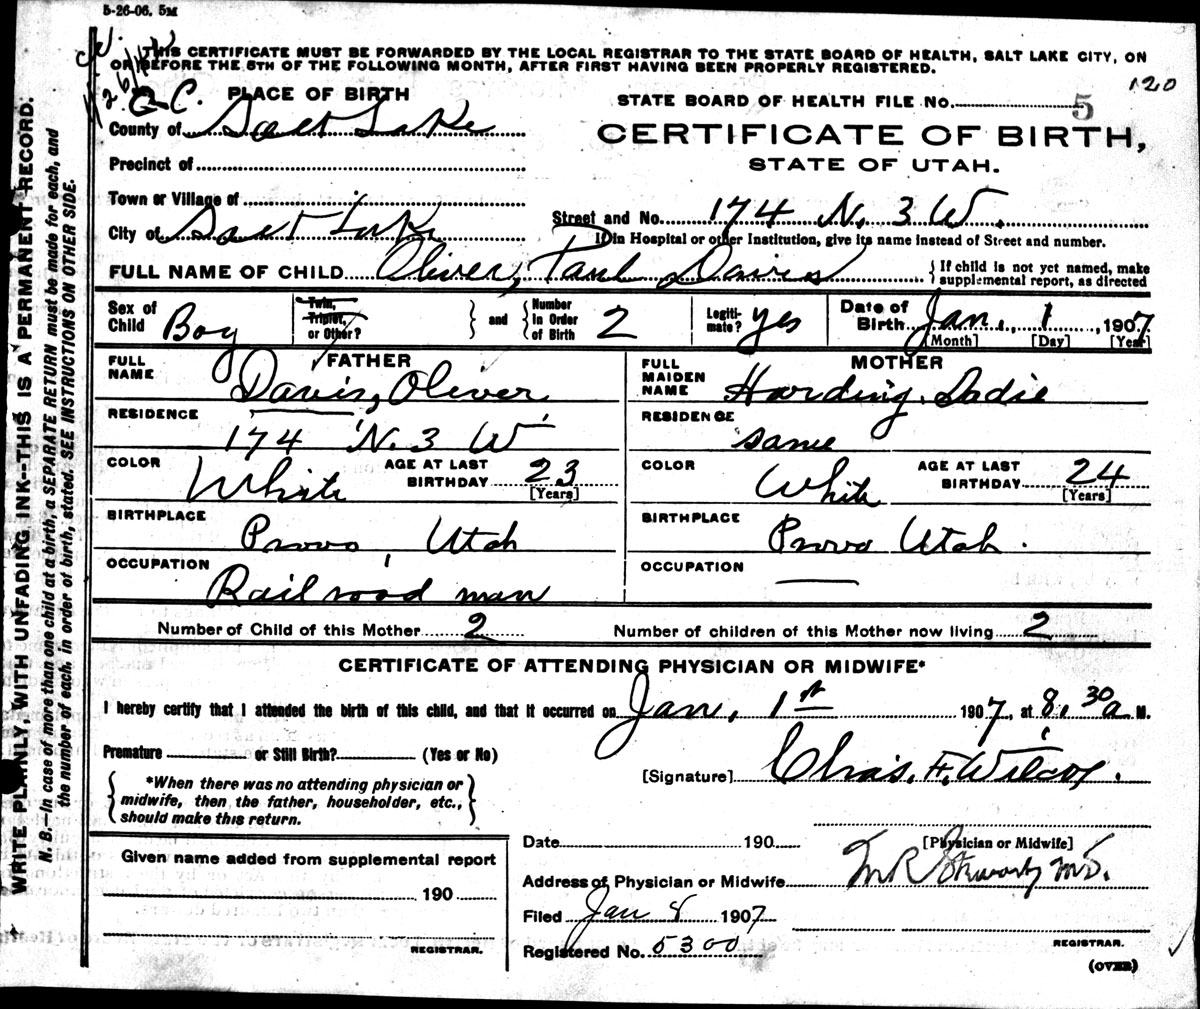 5-26-06. 5M
THIS CERTIFICATE MUST BE FORWARDED BY THE LOCAL REGISTRAR TO THE STATE BOARD OF HEALTH, SALT LAKE CITY, ON
OR BEFORE THE 5TH OF THE FOLLOWING MONTH, AFTER FIRST HAVING BEEN PROPERLY REGISTERED.
120
PLACE OF BIRTH
STATE BOARD OF HEALTH FILE NO. 5
County of Salt Lake
CERTIFICATE OF BIRTH,
Precinct of
STATE OF UTAH.
Town or Village of
Street and No. 174 N. 3 W.
City of Salt Lake
If in Hospital or other Institution, give its name instead of Street and number.
FULL NAME OF CHILD Oliver, Paul Davis
{ If child is not yet named, make
supplemental report, as directed
Sex of Child Boy
Twin, Triplet, or Other?
} and { Number In Order of Birth 2
Legiti-mate? yes
Date of Birth Jan. 1, 1907
[Month] [Day] [Year]
FATHER
FULL NAME Davis, Oliver
MOTHER
FULL MAIDEN NAME Harding, Sadie
RESIDENCE 174 N. 3 W
RESIDENCE same
COLOR White AGE AT LAST BIRTHDAY 23 [Years]
COLOR White AGE AT LAST BIRTHDAY 24 [Years]
BIRTHPLACE Provo, Utah
BIRTHPLACE Provo Utah.
OCCUPATION Railroad man
OCCUPATION
Number of Child of this Mother 2 Number of children of this Mother now living 2
CERTIFICATE OF ATTENDING PHYSICIAN OR MIDWIFE*
I hereby certify that I attended the birth of this child, and that it occurred on Jan. 1st 1907, at 8.30 a M.
Premature or Still Birth? (Yes or No)
[Signature] Chas. F. Wilcox.
{ *When there was no attending physician or
midwife, then the father, householder, etc.,
should make this return. }
[Physician or Midwife]
Given name added from supplemental report
190
REGISTRAR.
Date 190
Address of Physician or Midwife
M.D.
Filed Jan 8 1907
Registered No. 5300
REGISTRAR.
(OVER)
WRITE PLAINLY, WITH UNFADING INK--THIS IS A PERMANENT RECORD.
N. B.—In case of more than one child at a birth, a SEPARATE RETURN must be made for each, and
the number of each, in order of birth, stated. SEE INSTRUCTIONS ON OTHER SIDE.